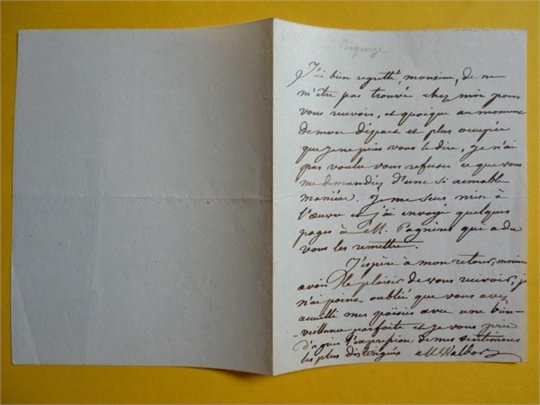 Degeorge
J'ai bien regretté, monsieur, de ne
m'être pas trouvée chez moi pour
vous recevoir, et quoique au moment
de mon départ et plus occupée
que je ne puis vous le dire, je n'ai
pas voulu vous refuser ce que vous
me demandiez d'une si aimable
manière. Je me suis mise à
l'œuvre et j'ai envoyé quelques
pages à M. Pagnerre qui a du
vous les remettre.
J'espère à mon retour, monsieur
avoir le plaisir de vous recevoir, je
n'ai point oublié que vous avez
accueilli mes poësies avec une bien-
-veillance parfaite et je vous prie
d'agréer l'expression de mes sentimens
les plus distingués M Waldor